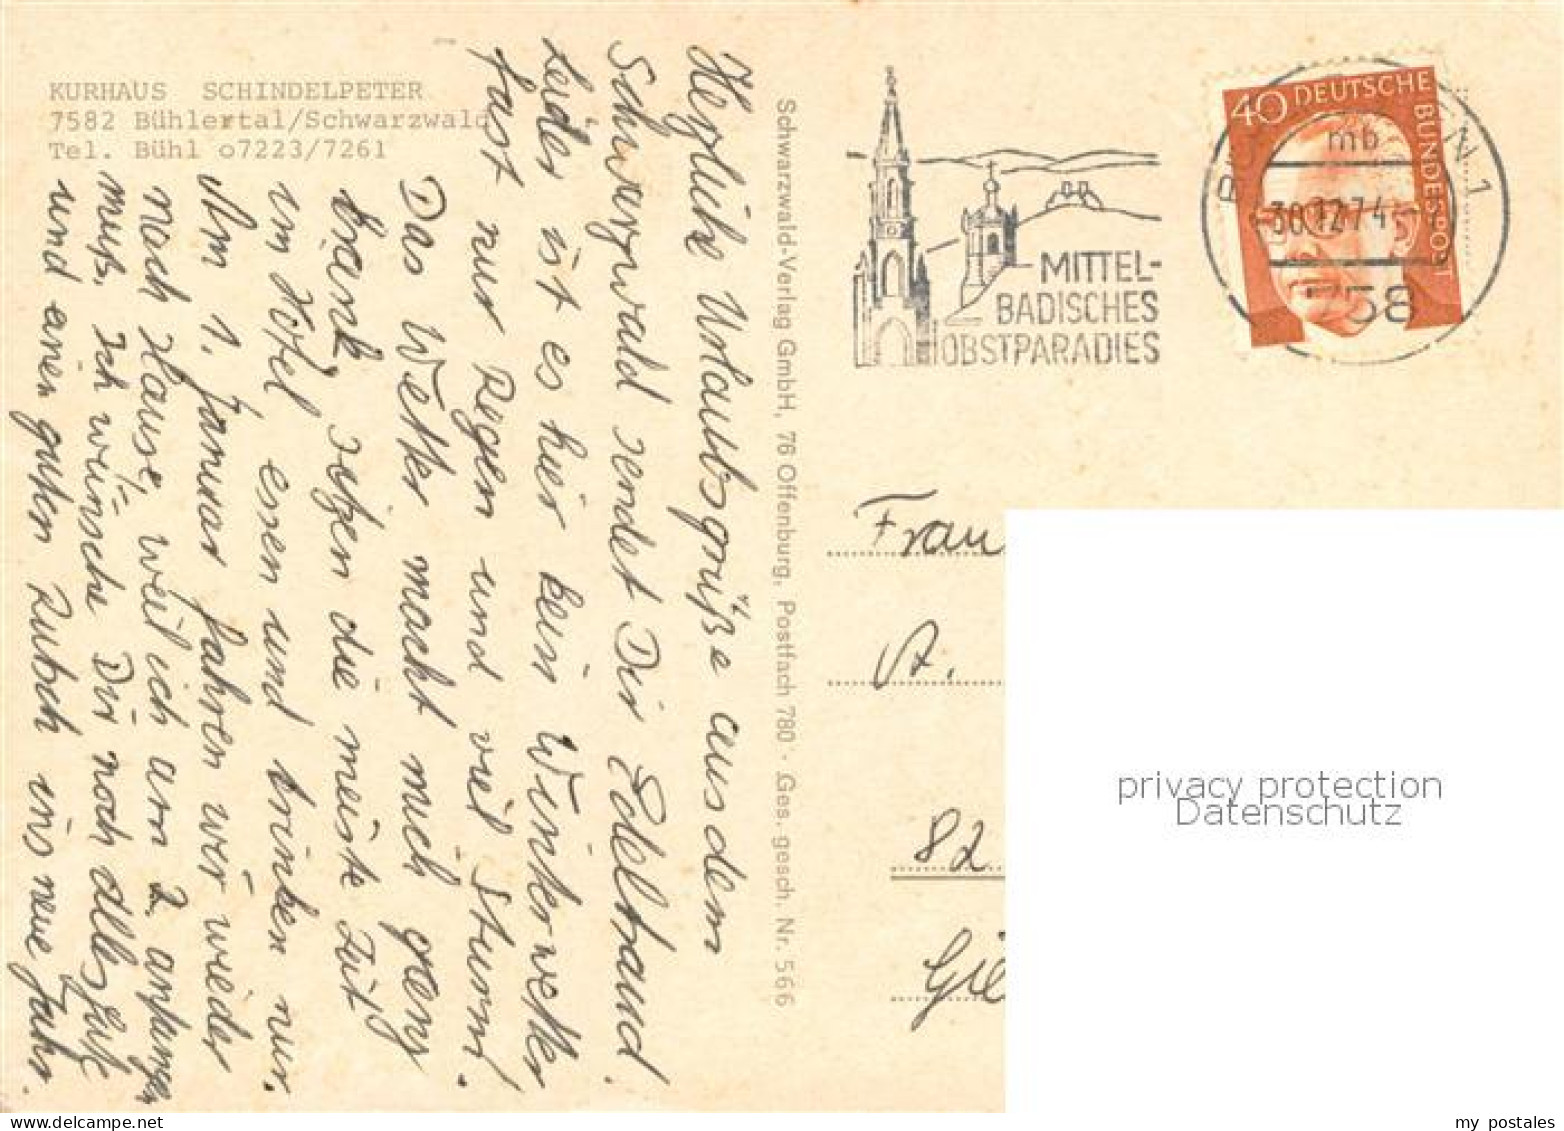 KURHAUS SCHINDELPETER
7582 Bühlertal/Schwarzwald
Tel. Bühl o7223/7261
Herzliche Urlaubsgrüße aus dem
Schwarzwald sendet Dir Edeltraud.
Leider ist es hier kein Winterwetter
fast nur Regen und viel Sturm.
Das Wetter macht mich ganz
krank, sitzen die meiste Zeit
im Hotel essen und trinken nur.
Am 1. Januar fahren wir wieder
nach Hause, weil ich am 2. anfangen
muß. Ich wünsche Dir noch alles Gute
und einen guten Rutsch ins neue Jahr.
Schwarzwald-Verlag GmbH, 76 Offenburg, Postfach 780 · Ges. gesch. Nr. 566
MITTEL-
BADISCHES
OBSTPARADIES
40 DEUTSCHE BUNDESPOST
mb
30.12.74
758
Frau
A.
82
Gie
privacy protection
Datenschutz
my postales